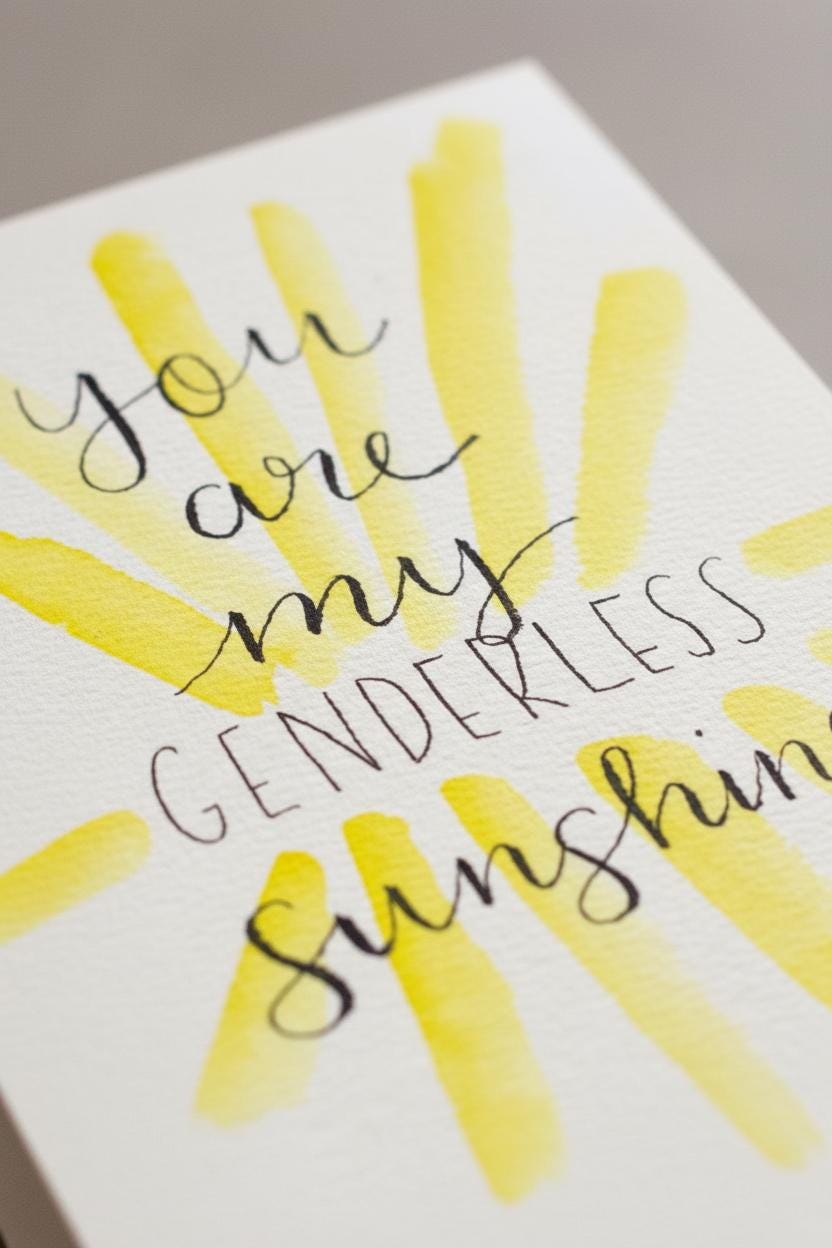 you
are
my
GENDERLESS
sunshin